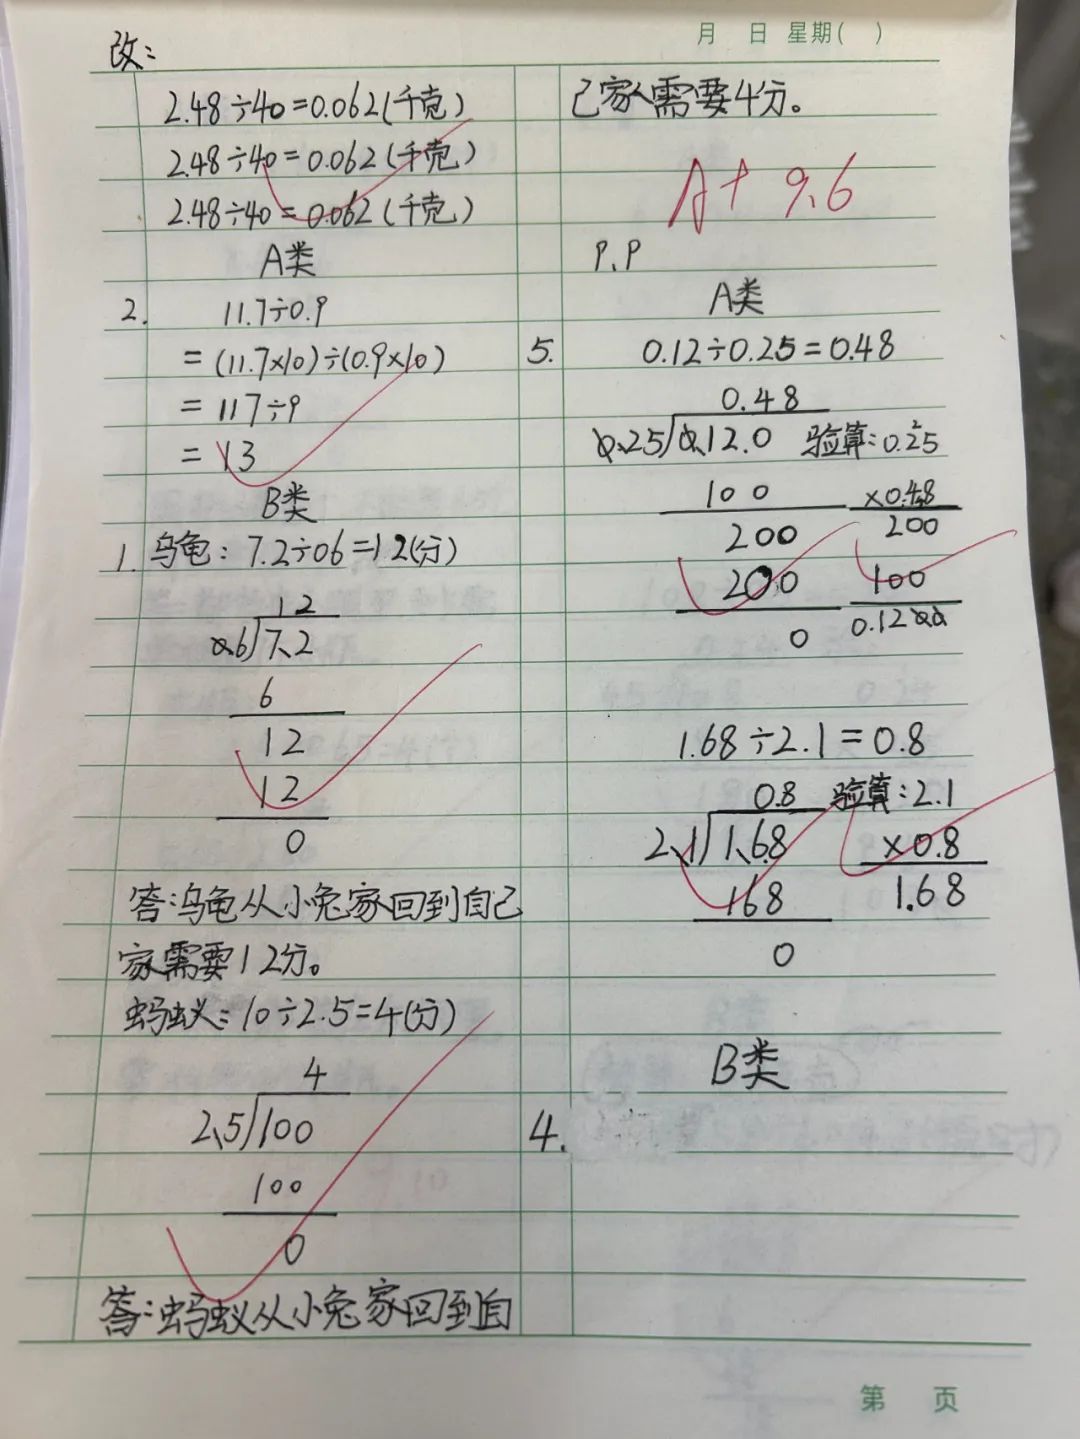 月 日 星期( )
改:
2.48÷40=0.062(千克)
2.48÷40=0.062(千克)
2.48÷40=0.062(千克)
A类
2. 11.7÷0.9
=(11.7×10)÷(0.9×10)
=117÷9
=13
B类
1. 乌龟:7.2÷06=12(分)
12
0.6 7.2
6
12
12
0
答:乌龟从小兔家回到自己
家需要12分。
蚂蚁:10÷2.5=4(分)
4
2.5 100
100
0
答:蚂蚁从小兔家回到自
己家需要4分。
A+ 9.6
P.P
A类
5. 0.12÷0.25=0.48
0.48
0.25 0.12.0 验算:0.25
100 ×0.48
200 200
200 100
0 0.1200
1.68÷2.1=0.8
0.8 验算:2.1
2.1 1.68 ×0.8
168 1.68
0
B类
4.
第 页